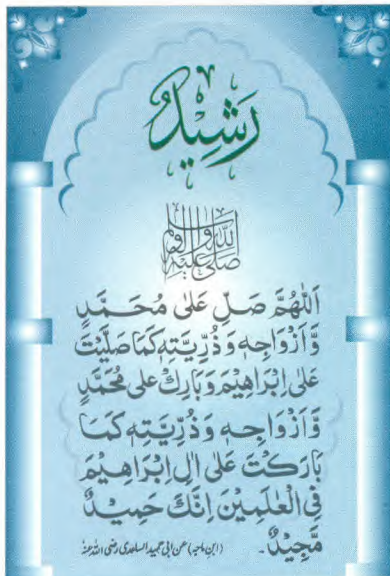 رَشِيْدٌ
صَلَّى اللّٰهُ عَلَيْهِ وَاٰلِهٖ وَسَلَّمَ
اَللّٰهُمَّ صَلِّ عَلٰى مُحَمَّدٍ
وَّاَزْوَاجِهٖ وَذُرِّيَّتِهٖ كَمَا صَلَّيْتَ
عَلٰى اِبْرَاهِيْمَ وَبَارِكْ عَلٰى مُحَمَّدٍ
وَّاَزْوَاجِهٖ وَذُرِّيَّتِهٖ كَمَا
بَارَكْتَ عَلٰى اٰلِ اِبْرَاهِيْمَ
فِى الْعٰلَمِيْنَ اِنَّكَ حَمِيْدٌ
مَّجِيْدٌ۔ (ابن ماجہ) عن ابی حمید الساعدی رضی اللہ عنہ